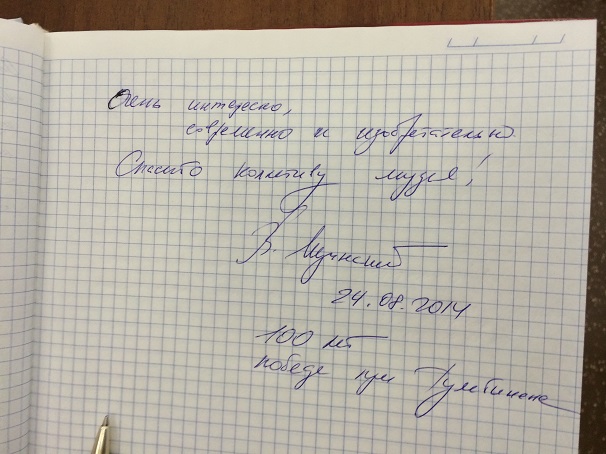 Очень интересно,
современно и изобретательно.
Спасибо коллективу музея!
В. Мединский
24.08.2014
100 лет
победе при Гумбиннене